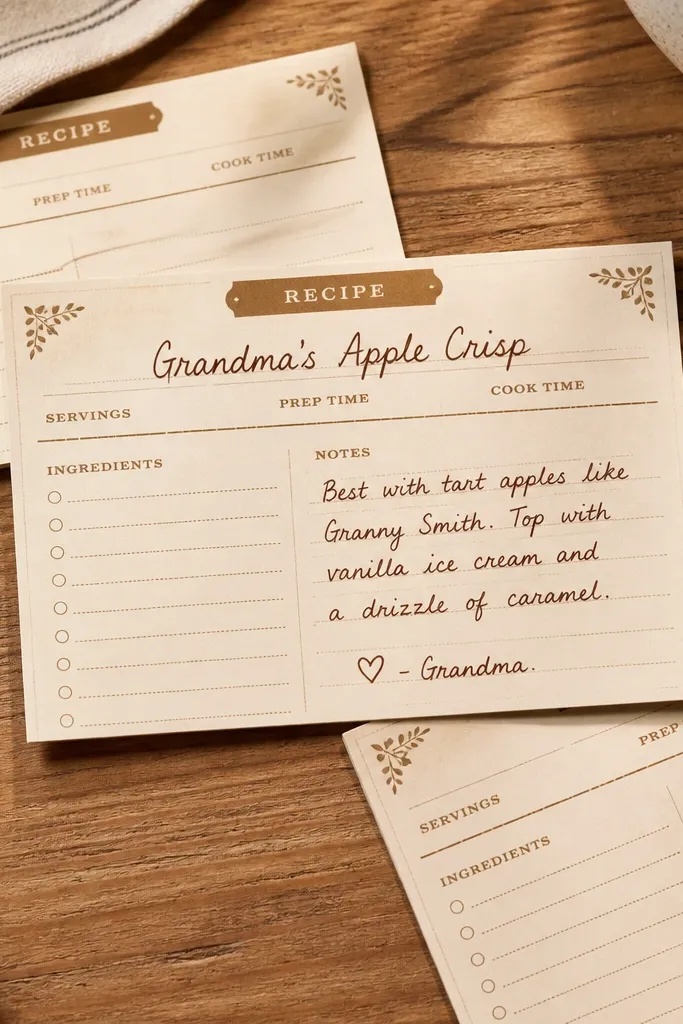 RECIPE
PREP TIME
COOK TIME
RECIPE
Grandma's Apple Crisp
SERVINGS
PREP TIME
COOK TIME
INGREDIENTS
NOTES
Best with tart apples like
Granny Smith. Top with
vanilla ice cream and
a drizzle of caramel.
♡ - Grandma.
PREP
SERVINGS
INGREDIENTS